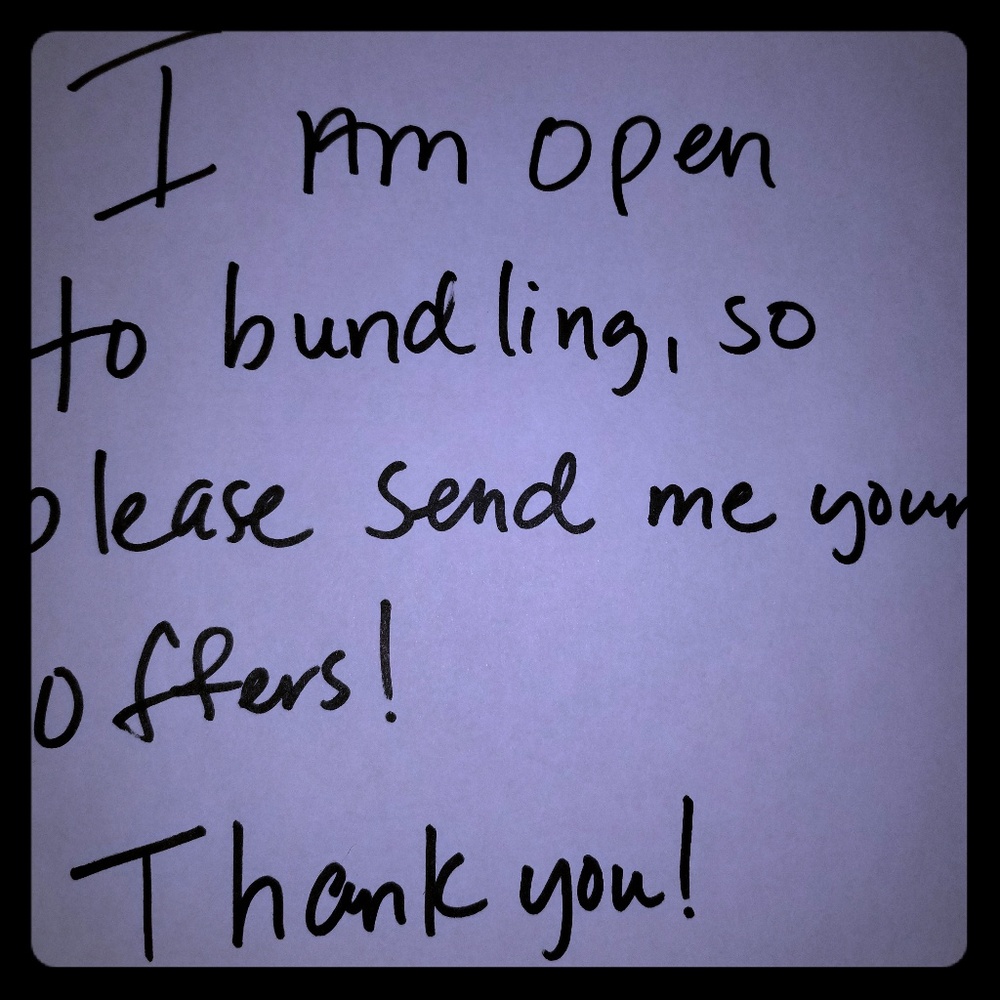 I Am open
to bundling, so
please send me your
offers!
Thank you!